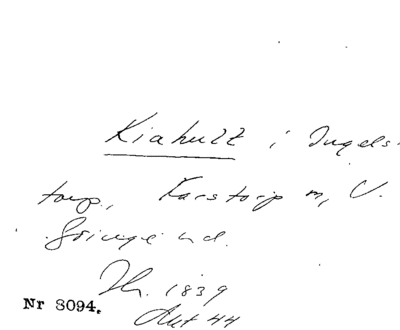 Kiahult i Ingels-
torp, Farstorp m, V.
Göinge hd.
Jh. 1839
Nr 8094.
Akt 44